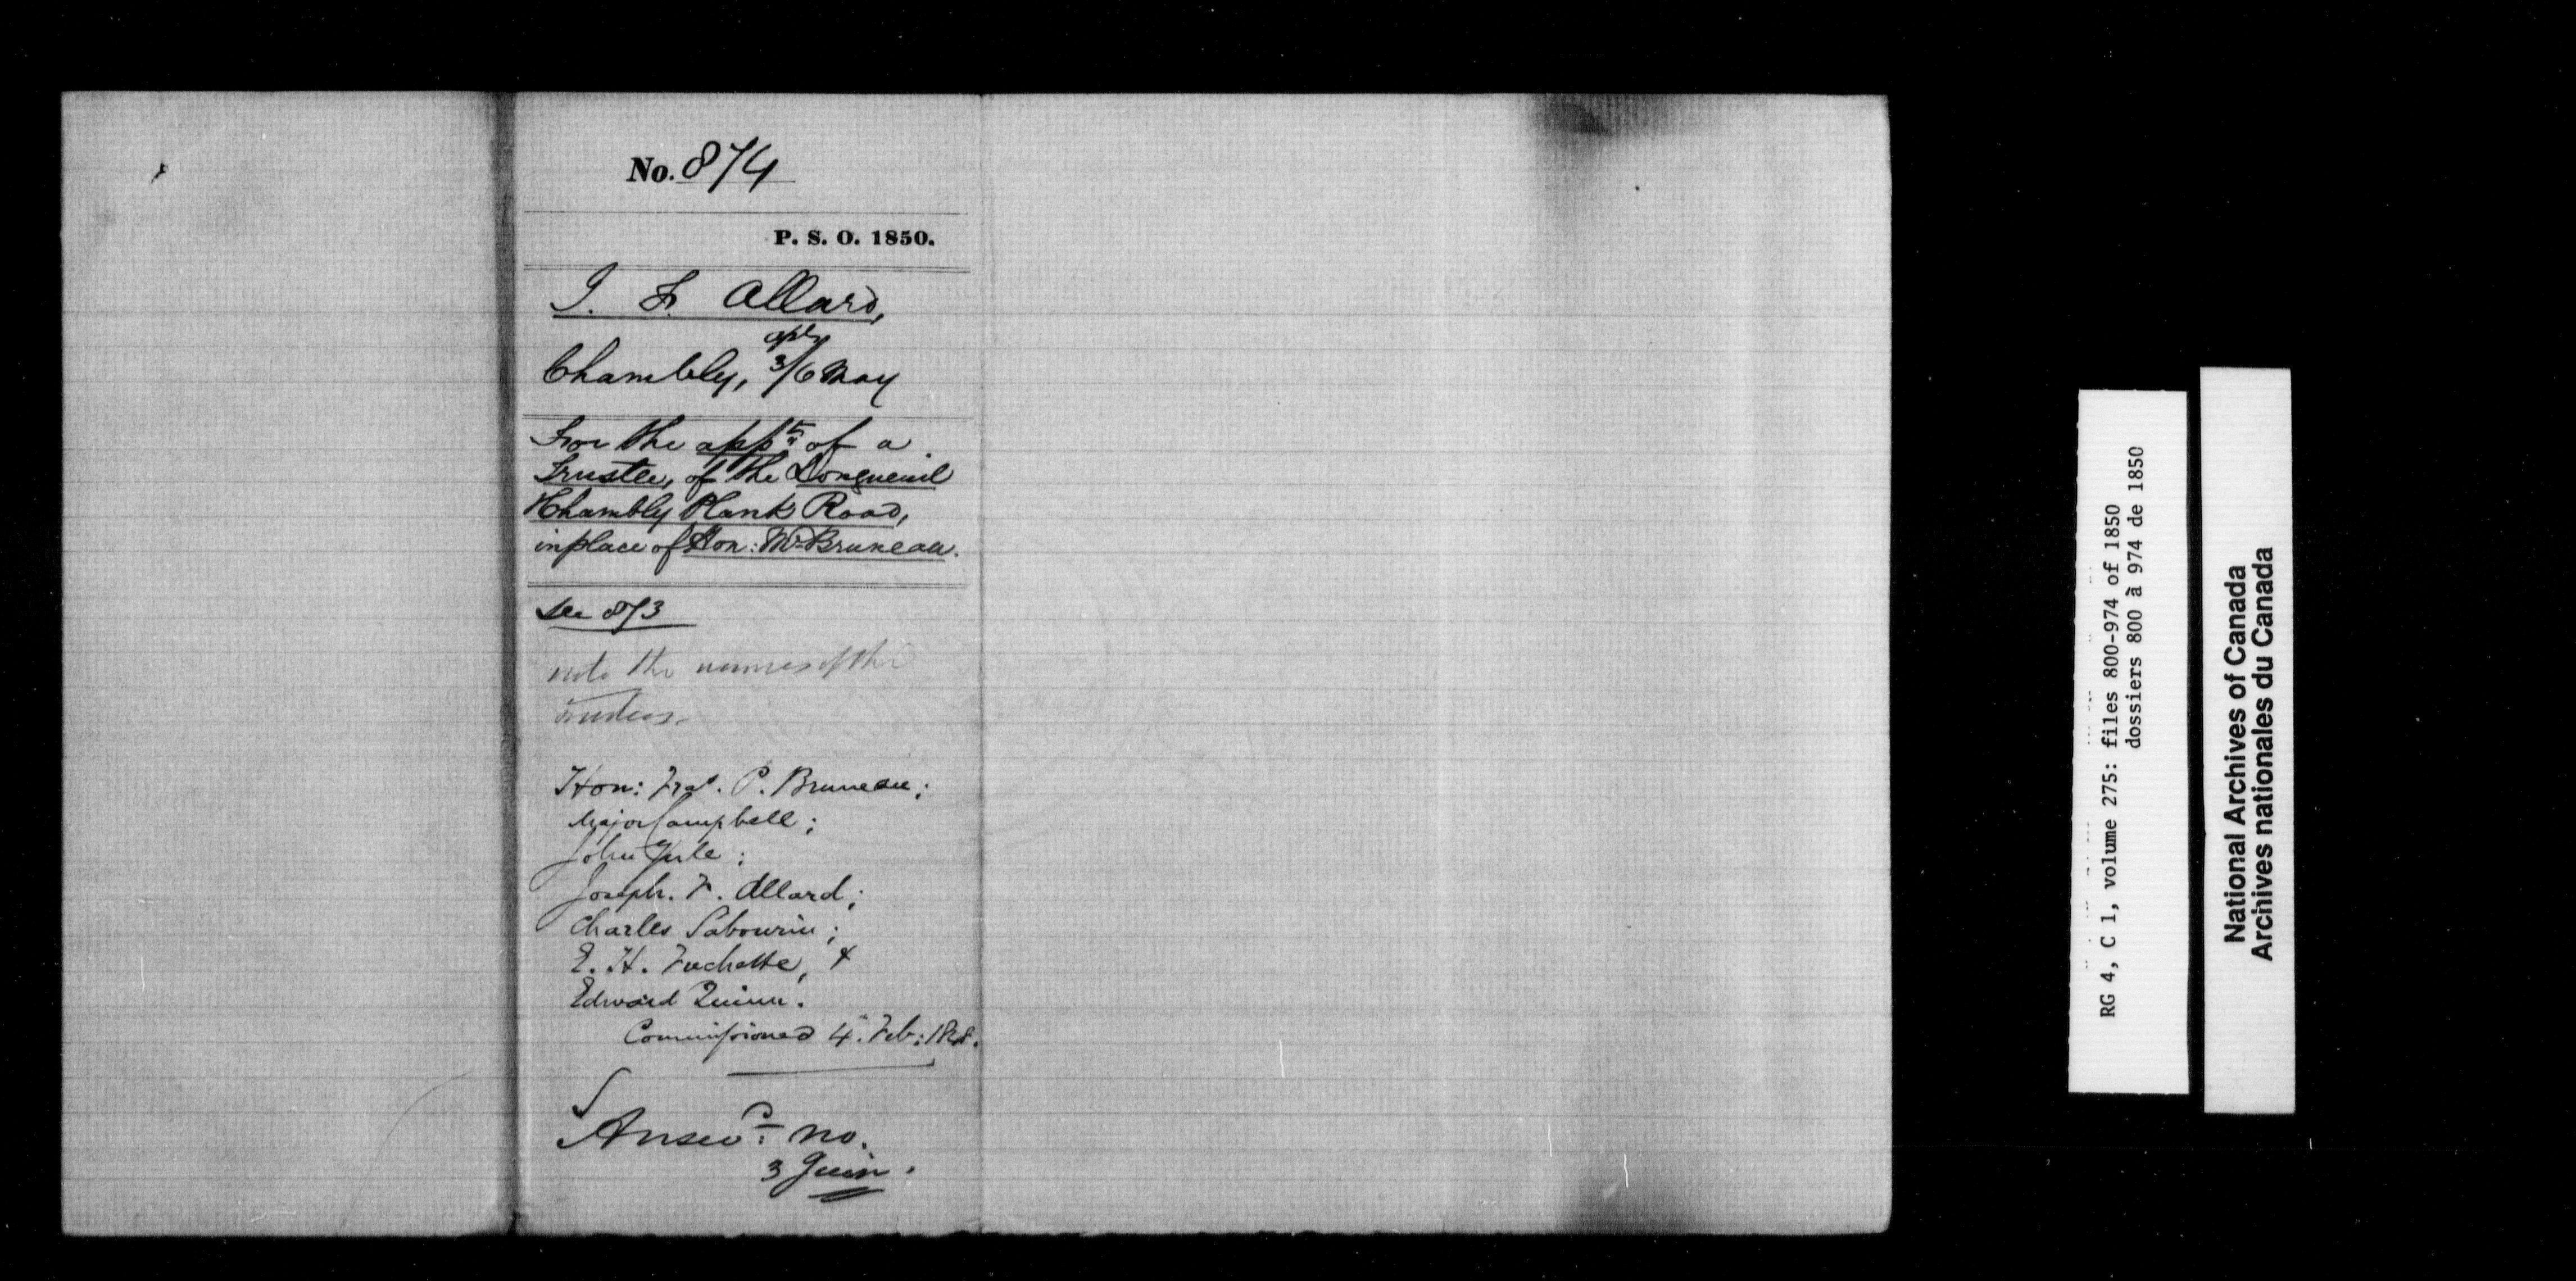 No. 874
P. S. O. 1850.
J. F. Allard,
apl
Chambly, 3/6 May
For the appt of a
Trustee, of the Longueuil
Chambly Plank Road,
in place of Hon: Mr Bruneau.
See 873
note the names of the
trustees.
Hon: Frs. P. Bruneau;
Major Campbell;
John Yule;
Joseph. F. Allard;
Charles Sabourin;
E. H. Fréchette, &
Edward Quinn.
Commissioned 4. Feb:
Answd: no.
3 Juin.
RG 4, C 1, volume 275: files 800-974 of 1850
dossiers 800 à 974 de 1850
National Archives of Canada
Archives nationales du Canada